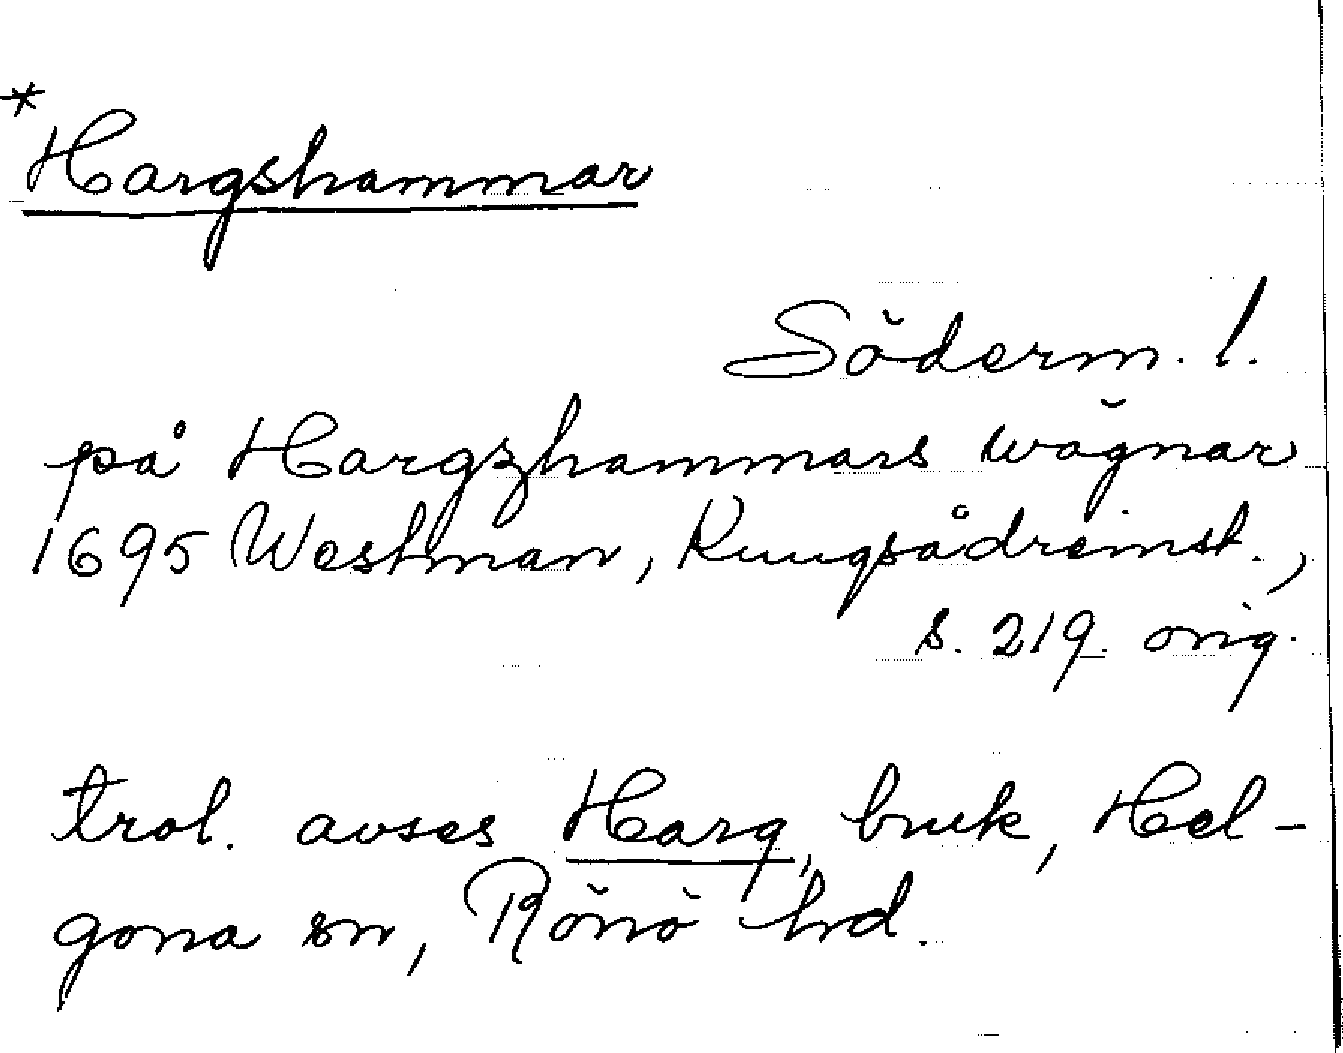 *Hargshammar
Söderm. l.
på Hargzhammars wägnar
1695 Westman, Kungsådreinst.,
s. 219. orig.
trol. avses Harg, bruk, Hel-
gona sn, Rönö hd.